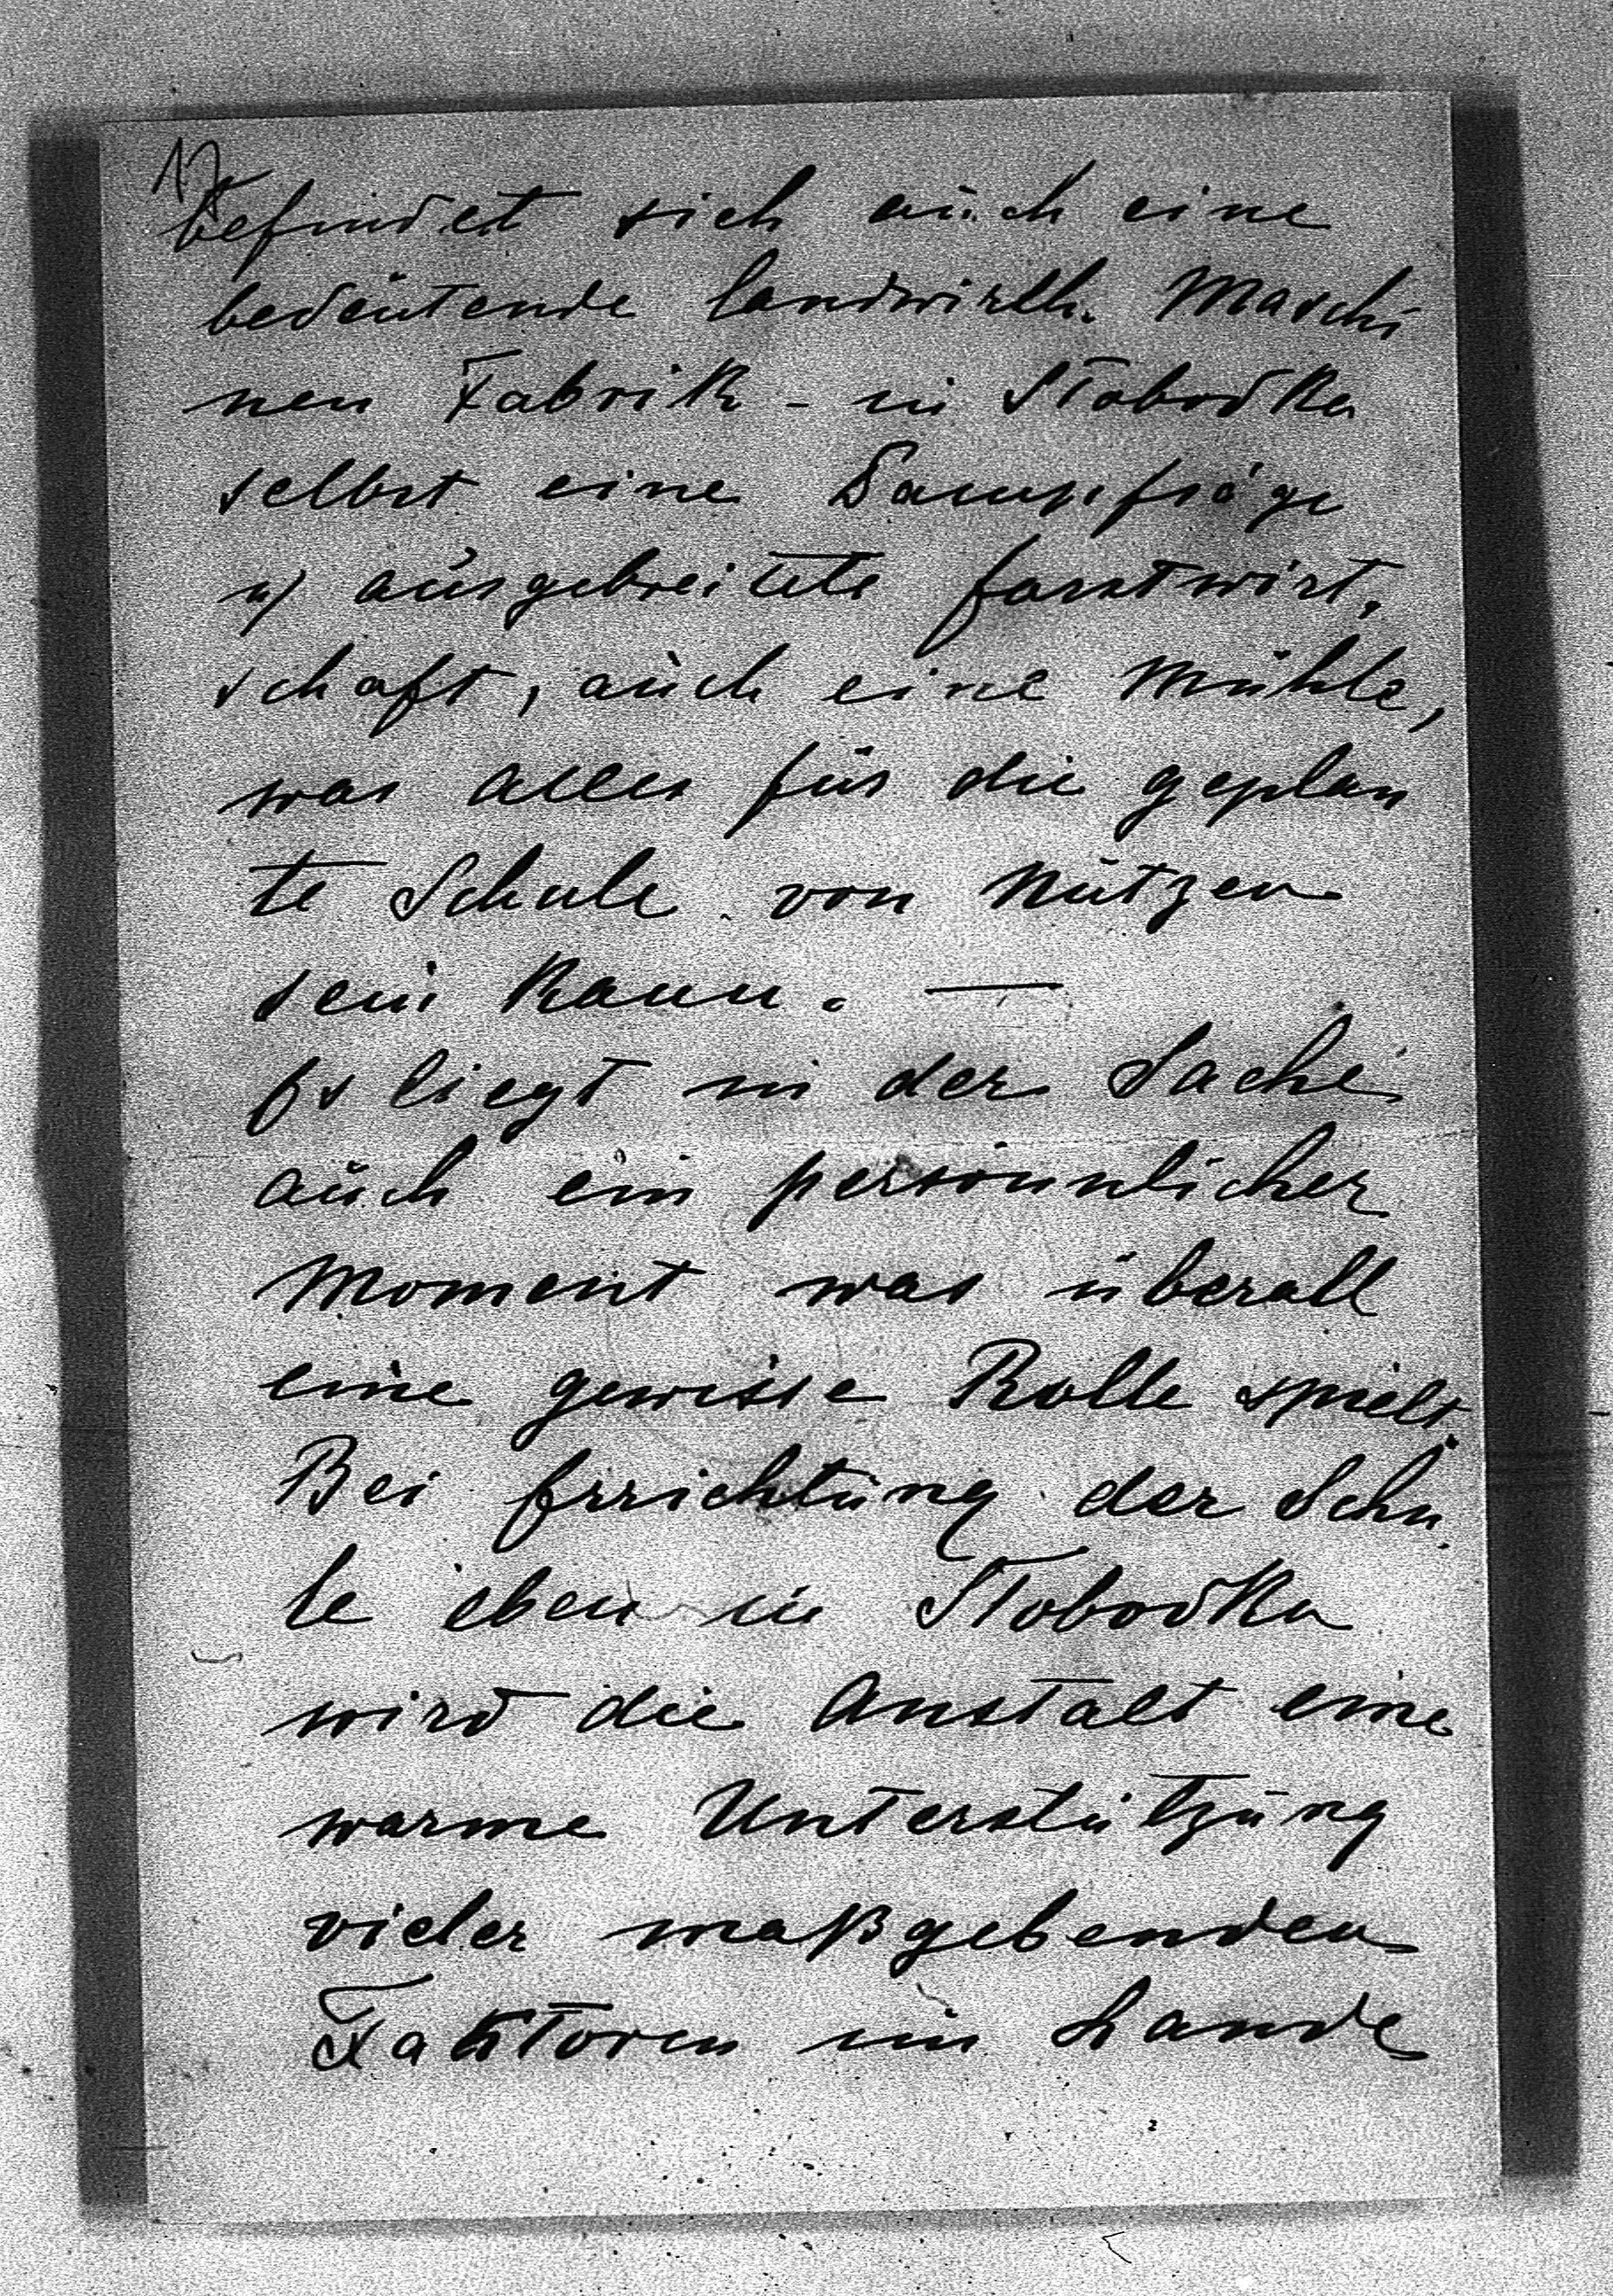 17
befindet sich auch eine
bedeutende landwirth. Maschi
nen Fabrik - in Slobodka
selbst eine Dampfsäge
u) ausgebreitete forstwirt,
schaft, auch eine Mühle,
was alles für die geplan
te Schule von Nutzen
sein kann. —
Es liegt in der Sache
auch ein persönnlicher
Moment was überall
eine gewisse Rolle spielt.
Bei Errichtung der Schu
le eben in Slobodka
wird die Anstalt eine
warme Unterstützung
vieler maßgebenden
Faktoren im Lande